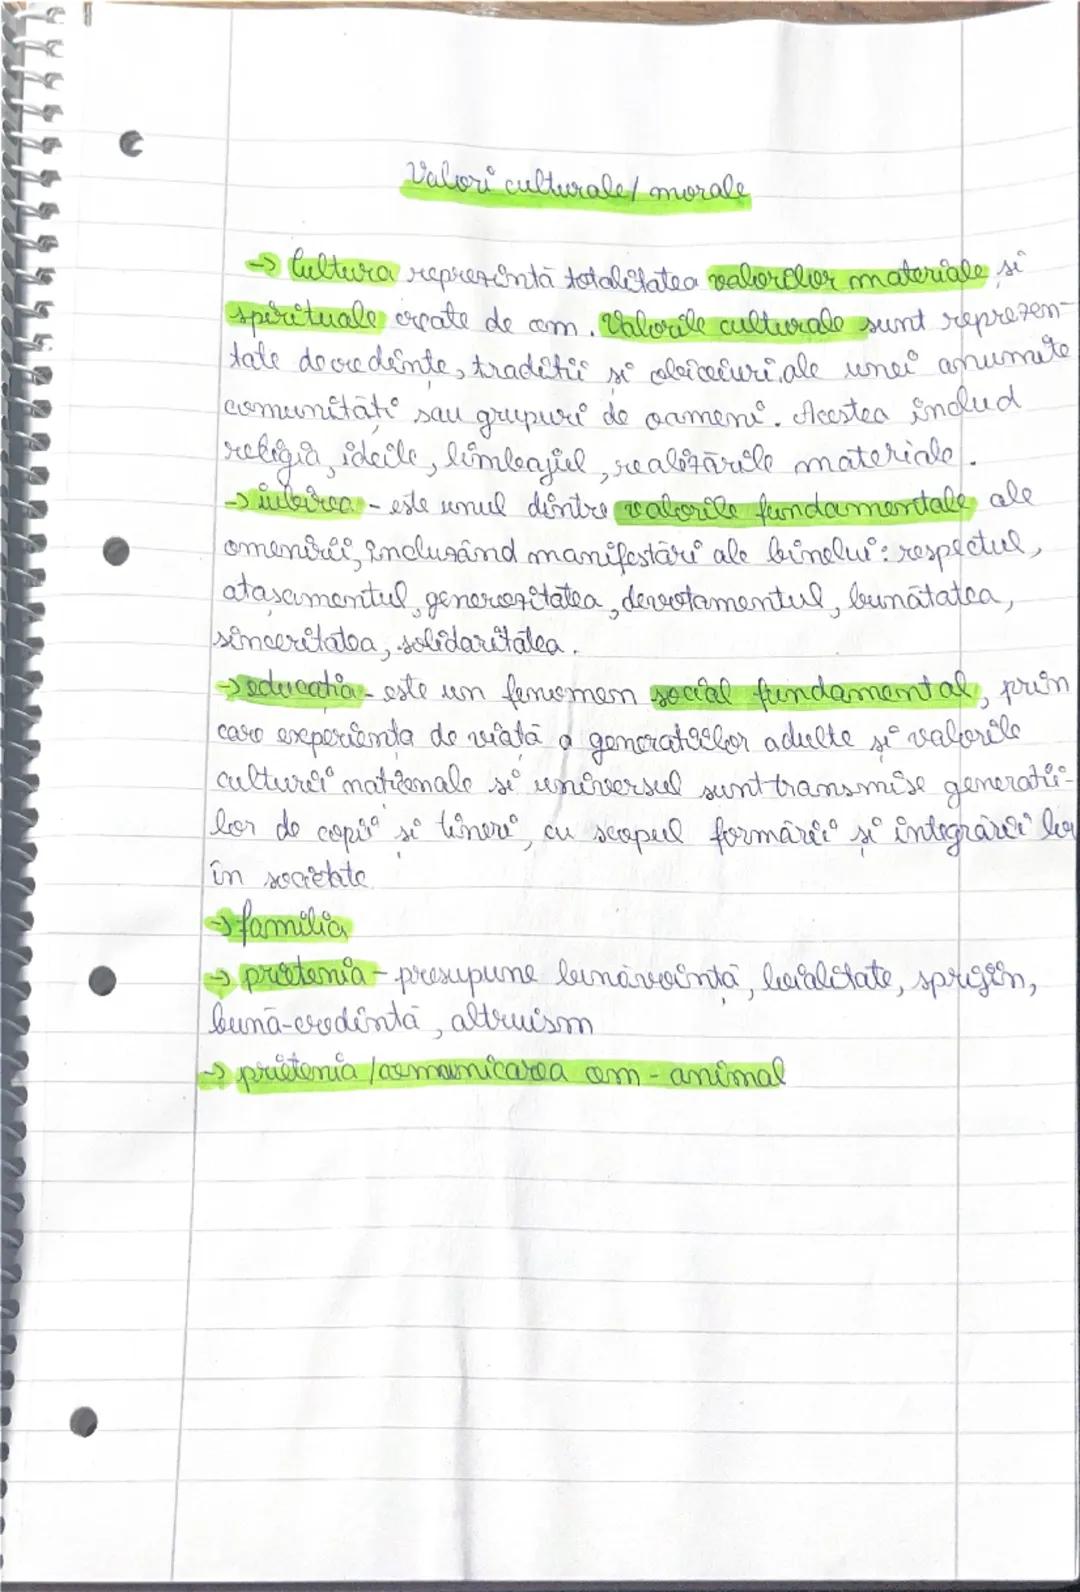 Valori culturale/ morale
→ Cultura reprezintă totalitatea valorilor materiale și
spirituale create de om. Valorile culturale sunt reprezen-
tate de credințe, tradiții și obiceiuri, ale unei anumite
comunități sau grupuri de oameni. Acestea includ
religia, ideile, limbajul, realizările materiale.
→ iubirea - este unul dintre valorile fundamentale ale
omenirii, incluzând manifestări ale binelui: respectul,
atașamentul, generozitatea, devotamentul, bunătatea,
sinceritatea, solidaritatea.
→ educația - este un fenomen social fundamental, prin
care experiența de viață a generațiilor adulte și valorile
culturii naționale și universul sunt transmise generații-
lor de copii și tineri, cu scopul formării și integrării lor
în societate
→ familia
→ prietenia - presupune bunăvoință, loialitate, sprijin,
bună-credință, altruism
→ prietenia /comunicarea om - animal